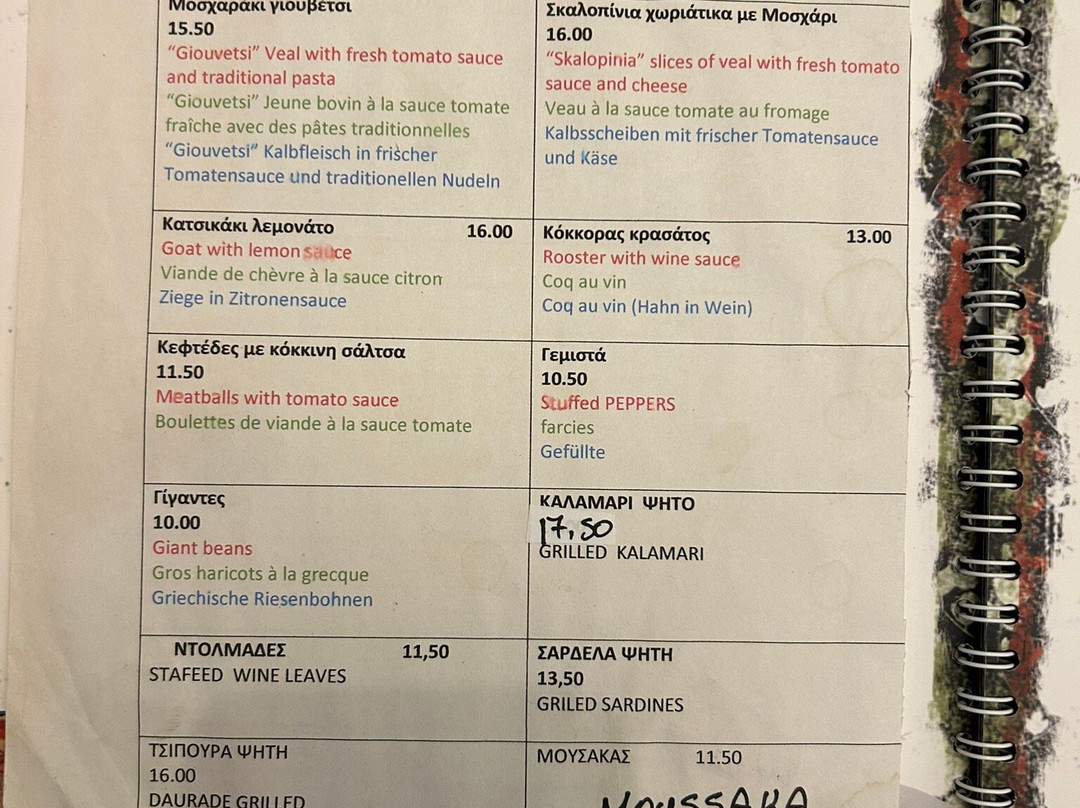 Μοσχαράκι γιουβέτσι
15.50
“Giouvetsi” Veal with fresh tomato sauce
and traditional pasta
“Giouvetsi” Jeune bovin à la sauce tomate
fraîche avec des pâtes traditionnelles
“Giouvetsi” Kalbfleisch in frischer
Tomatensauce und traditionellen Nudeln
Σκαλοπίνια χωριάτικα με Μοσχάρι
16.00
“Skalopinia” slices of veal with fresh tomato
sauce and cheese
Veau à la sauce tomate au fromage
Kalbsscheiben mit frischer Tomatensauce
und Käse
Κατσικάκι λεμονάτο 16.00
Goat with lemon sauce
Viande de chèvre à la sauce citron
Ziege in Zitronensauce
Κόκκορας κρασάτος 13.00
Rooster with wine sauce
Coq au vin
Coq au vin (Hahn in Wein)
Κεφτέδες με κόκκινη σάλτσα
11.50
Meatballs with tomato sauce
Boulettes de viande à la sauce tomate
Γεμιστά
10.50
Stuffed PEPPERS
farcies
Gefüllte
Γίγαντες
10.00
Giant beans
Gros haricots à la grecque
Griechische Riesenbohnen
ΚΑΛΑΜΑΡΙ ΨΗΤΟ
17,50
GRILLED KALAMARI
ΝΤΟΛΜΑΔΕΣ 11,50
STAFEED WINE LEAVES
ΣΑΡΔΕΛΑ ΨΗΤΗ
13,50
GRILED SARDINES
ΤΣΙΠΟΥΡΑ ΨΗΤΗ
16.00
DAURADE GRILLED
ΜΟΥΣΑΚΑΣ 11.50
MOUSSAKA